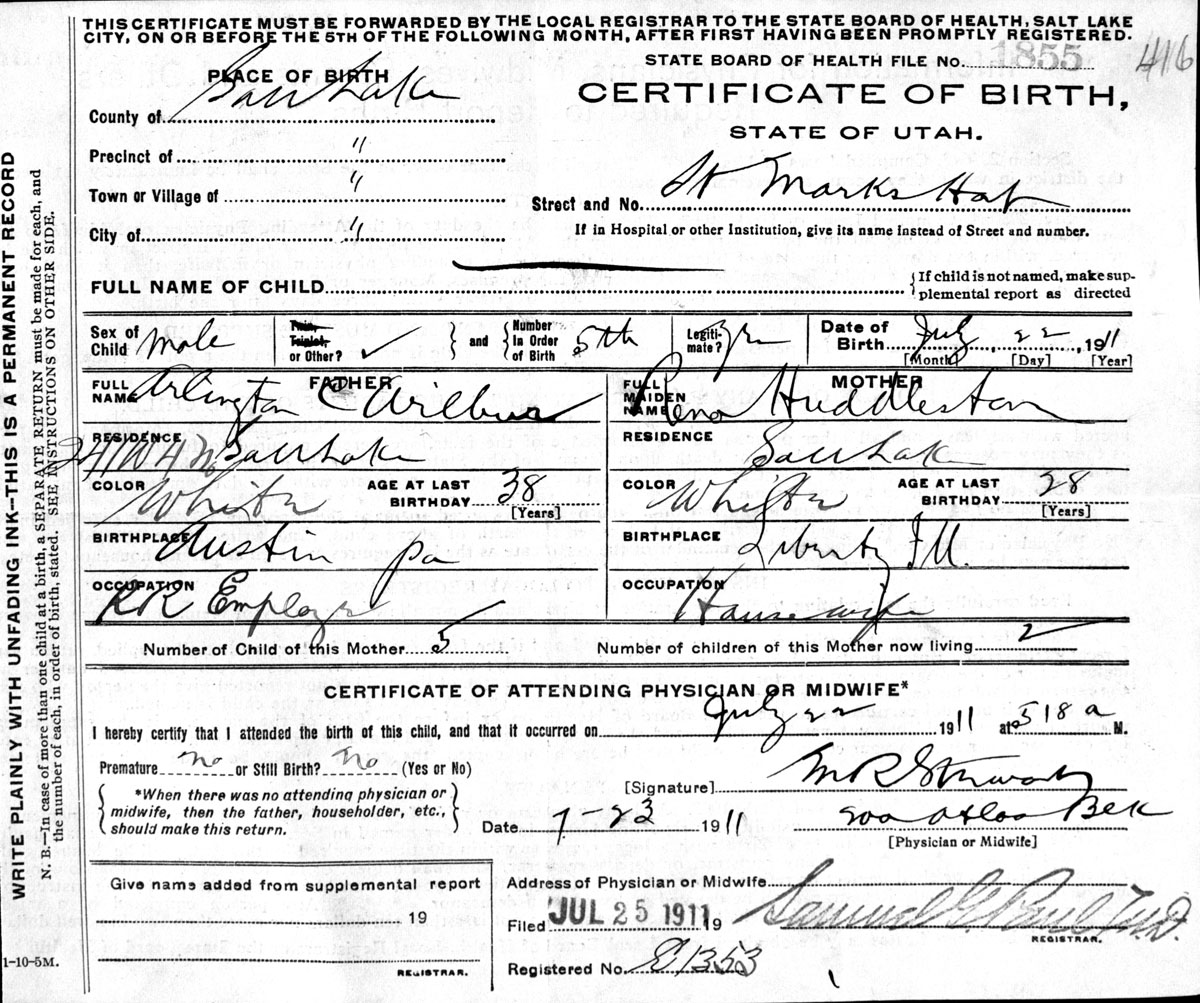 THIS CERTIFICATE MUST BE FORWARDED BY THE LOCAL REGISTRAR TO THE STATE BOARD OF HEALTH, SALT LAKE
CITY, ON OR BEFORE THE 5TH OF THE FOLLOWING MONTH, AFTER FIRST HAVING BEEN PROMPTLY REGISTERED.
STATE BOARD OF HEALTH FILE No. 1855 416
PLACE OF BIRTH
CERTIFICATE OF BIRTH,
County of Salt Lake
STATE OF UTAH.
Precinct of "
Town or Village of "
Street and No. St Marks Hosp
City of "
If in Hospital or other Institution, give its name instead of Street and number.
FULL NAME OF CHILD { If child is not named, make supplemental report as directed
Sex of Child Male Twin, Triplet, or Other? ✓ } and { Number In Order of Birth 5th Legitimate? Date of Birth July 22, 1911
[Month] [Day] [Year]
FATHER MOTHER
FULL NAME Arlington C Wilbur FULL MAIDEN NAME Rena Huddleston
RESIDENCE Salt Lake RESIDENCE Salt Lake
COLOR White AGE AT LAST BIRTHDAY 38 [Years] COLOR White AGE AT LAST BIRTHDAY 38 [Years]
BIRTHPLACE Austin Pa BIRTHPLACE Liberty Ill.
OCCUPATION RR Employe OCCUPATION Housewife
Number of Child of this Mother 5 Number of children of this Mother now living 2
CERTIFICATE OF ATTENDING PHYSICIAN OR MIDWIFE*
I hereby certify that I attended the birth of this child, and that it occurred on July 22 1911 at 518 a M.
Premature No or Still Birth? No (Yes or No)
[Signature] M R Stewart
*When there was no attending physician or
midwife, then the father, householder, etc.,
should make this return.
Date 7-23 1911
[Physician or Midwife]
Give name added from supplemental report
Address of Physician or Midwife
19
Filed JUL 25 1911 19 Samuel G. Paul M.D.
REGISTRAR.
REGISTRAR.
Registered No. E1353
1-10-5M.
WRITE PLAINLY WITH UNFADING INK—THIS IS A PERMANENT RECORD
N. B.—In case of more than one child at a birth, a SEPARATE RETURN must be made for each, and
the number of each, in order of birth, stated. SEE INSTRUCTIONS ON OTHER SIDE.